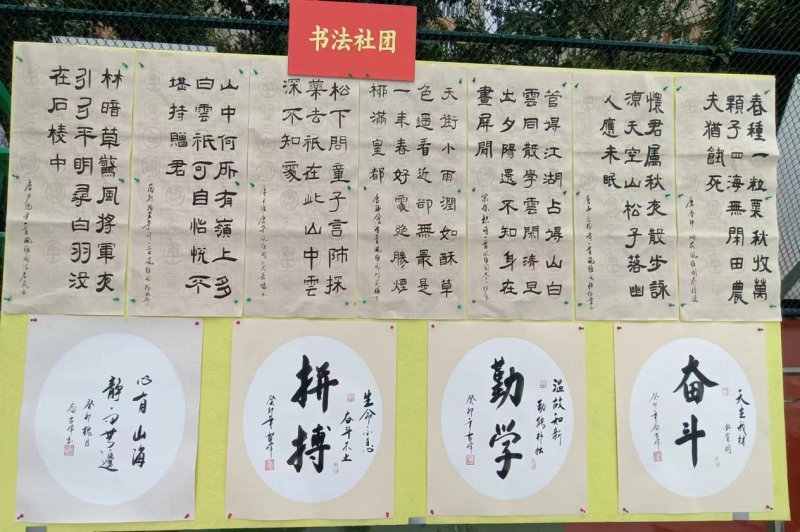 书法社团
春種一粒粟秋收萬
顆子四海無閑田農
夫猶餓死
懷君屬秋夜散步詠
涼天空山松子落幽
人應未眠
管得江湖占得山白
雲同散學雲閑清早
出夕陽還不知身在
畫屏間
天街小雨潤如酥草
色遥看近卻無最是
一年春好處絕勝煙
柳滿皇都
松下問童子言師採
藥去祇在此山中雲
深不知處
山中何所有嶺上多
白雲祇可自怡悅不
堪持贈君
林暗草驚風將軍夜
引弓平明尋白羽沒
在石棱中
天生我材
必有用
奋斗
癸卯年
温故知新
勤能补拙
勤学
癸卯年
生命不息
奋斗不止
拼搏
癸卯年
心有山海
静而無邊
癸卯